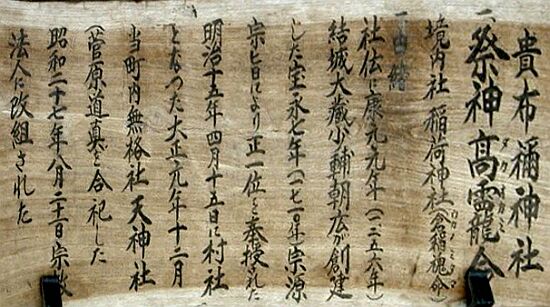 貴布禰神社
一、祭神 高雷龍命
タカオカミノ
境内社 稲荷神社(倉稲魂命)
一、由緒
社伝に康元元年(一二五六年)
結城大蔵少輔朝広が創建
した宝永七年(一七一〇年)宗源
宗旨により正一位を奉授された
明治十五年四月十五日に村社
となつた大正元年十二月
当町内無格社天神社
(菅原道真を合祀した
昭和二十七年八月二十一日宗教
法人に改組された